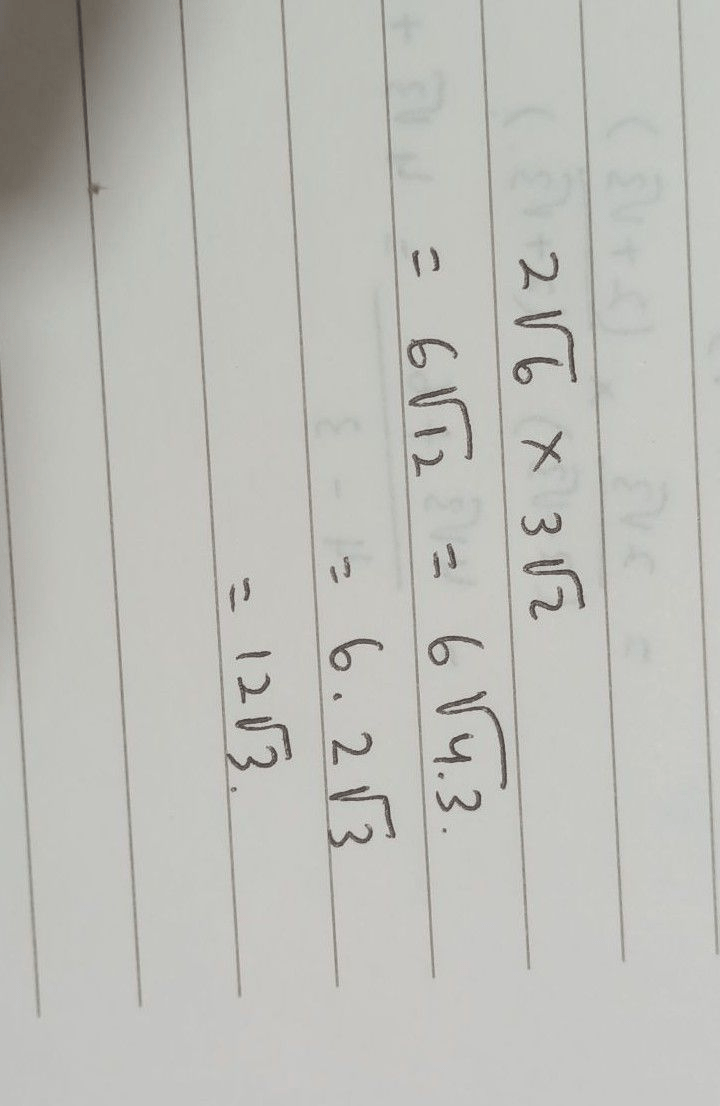 2√6 × 3√2
= 6√12 = 6√4.3.
= 6.2√3
= 12√3.